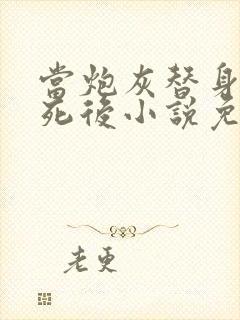 當炮灰替身
死後小說免
老更